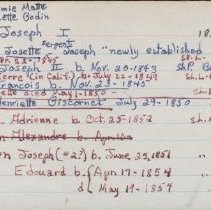 mie Matte
lette Bodin
Joseph I 18
Josette Serpent Joseph "newly established
Joseph II b. Nov. 20-1843 St.P. B
Pierre (in Calif.) b. July 22-1849 St.L.
rancois b. Nov. 23-1845
died May 1-1850 St.L.
enriette Giscornet July 29-1850
Adrienne b. Oct. 25-1852 St.L.
n Alexandre b. Apr.
n Joseph (#2?) b. June 23, 1851
Edouard b. Apr. 17-1854
d. May 19-1854